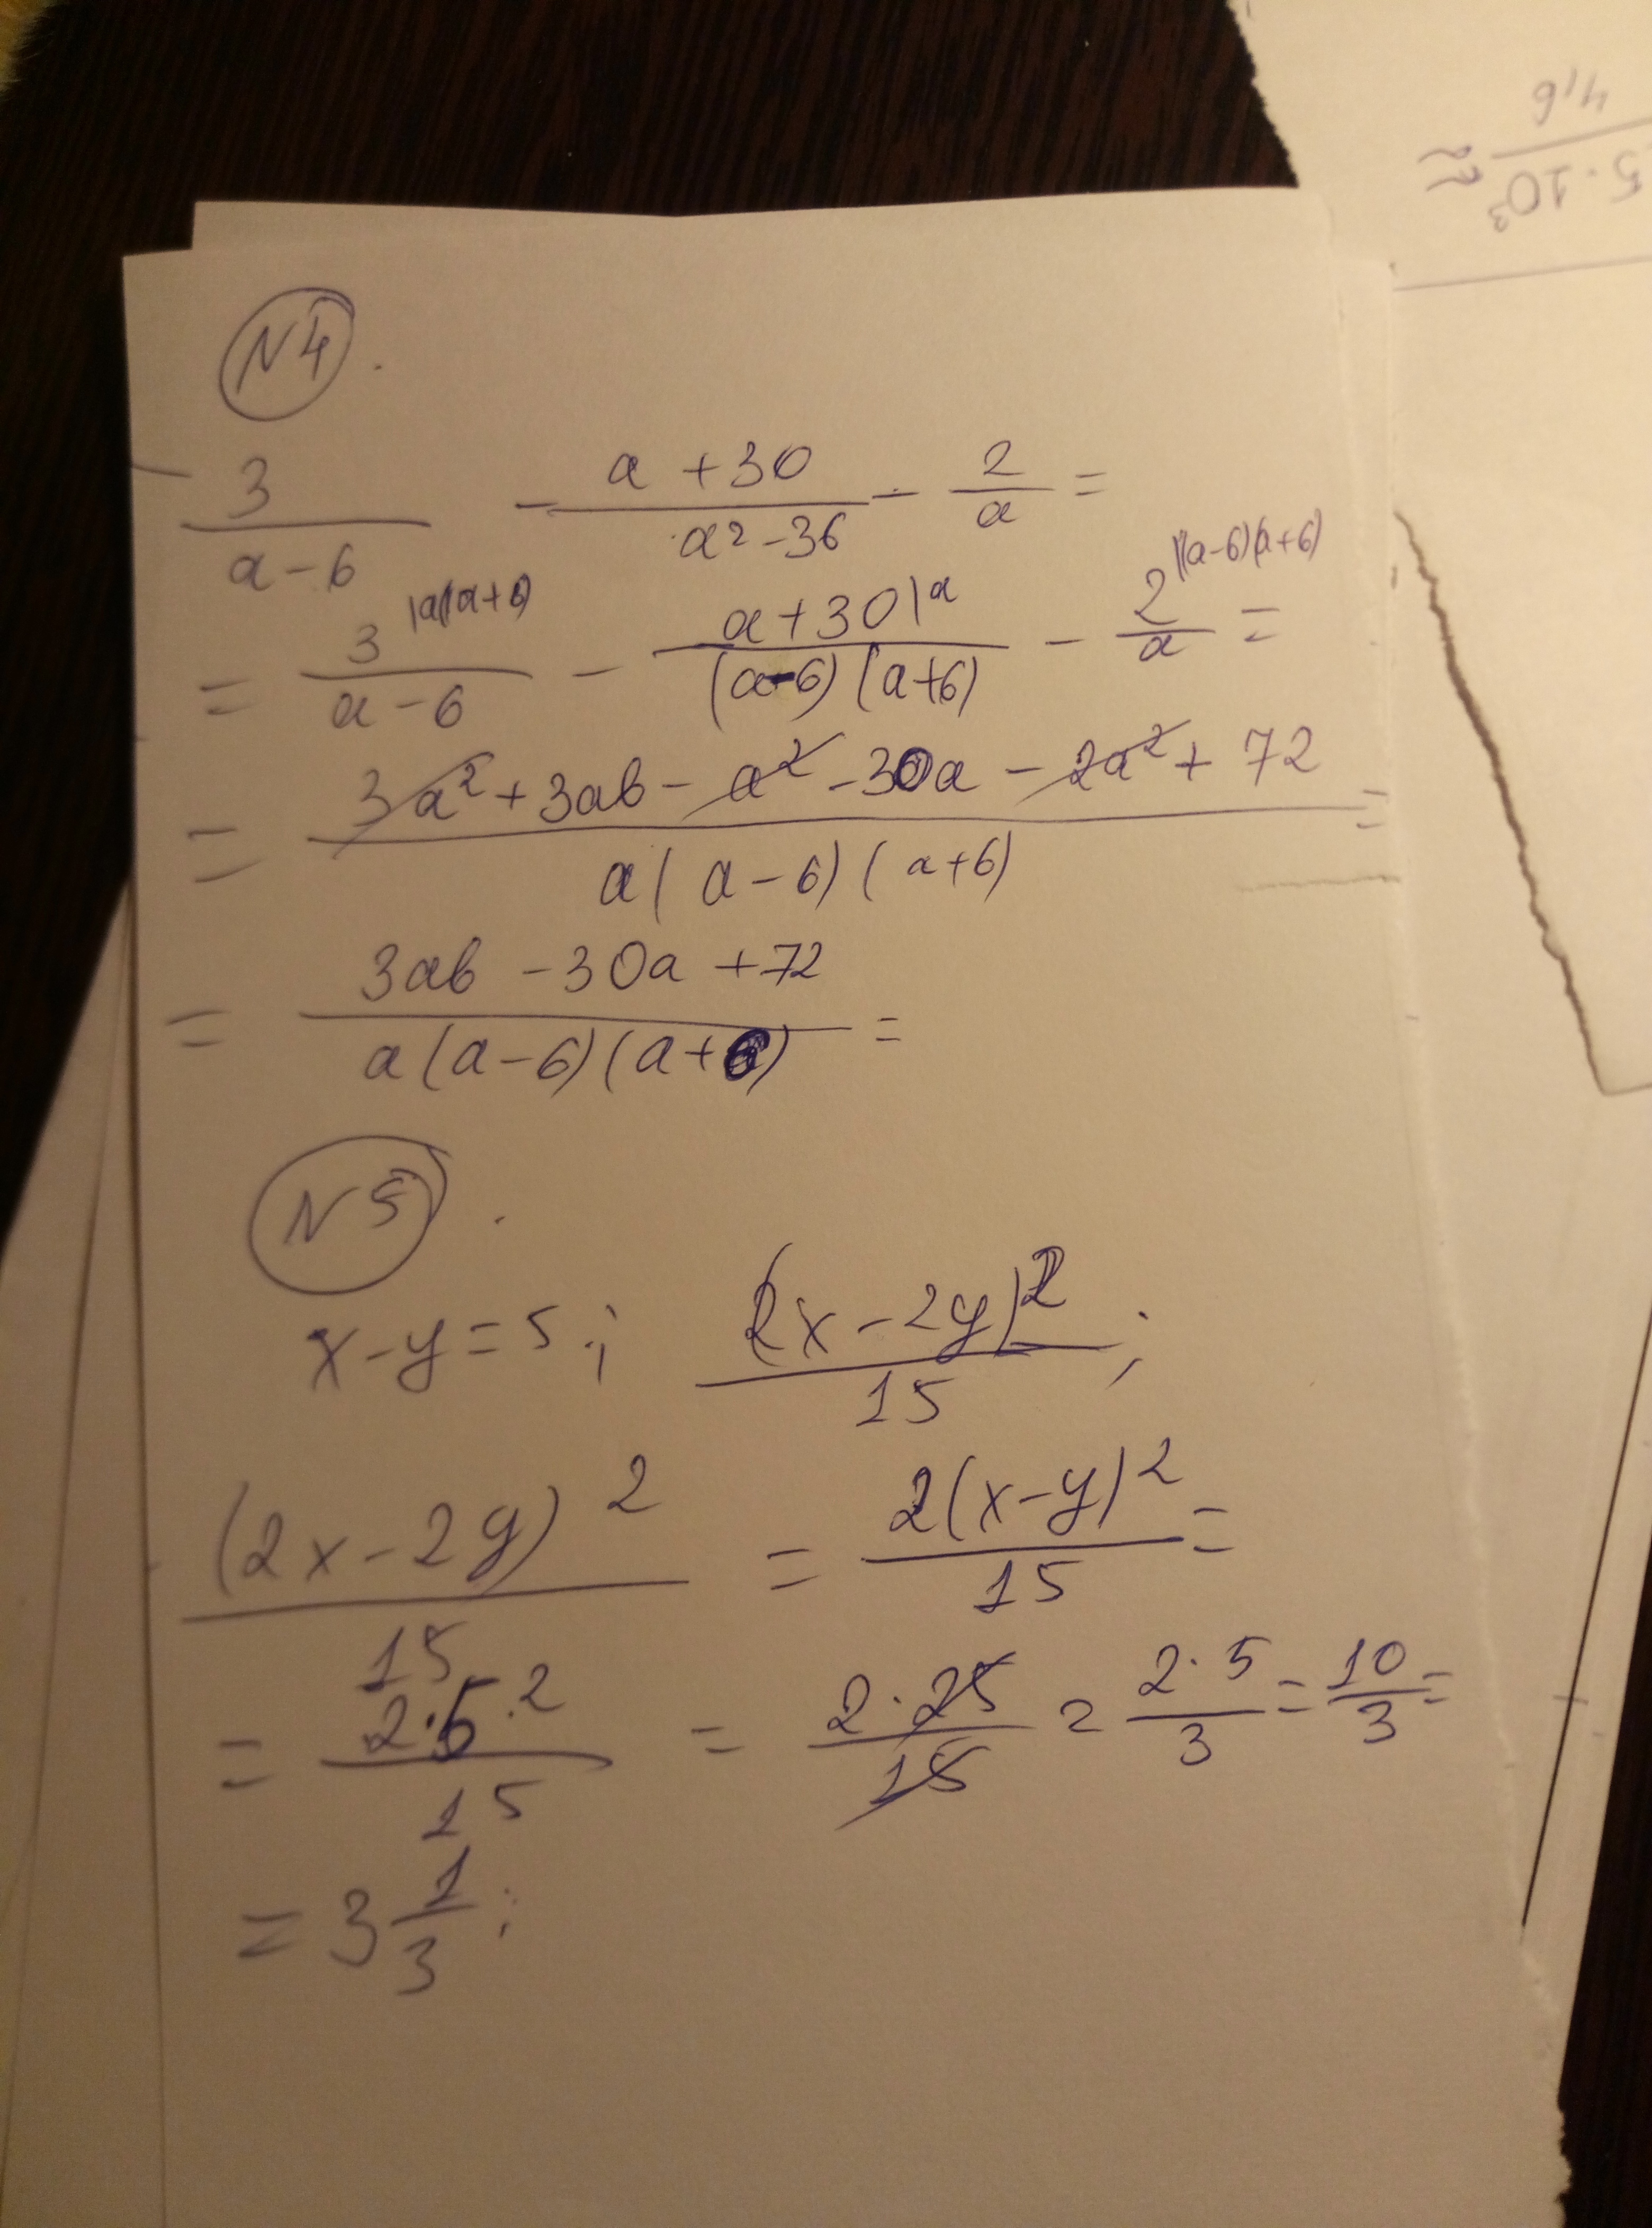 N4.
3/(a-6) - (a+30)/(a²-36) - 2/a =
= 3|a(a+6)/(a-6) - (a+30)|a/((a-6)(a+6)) - 2|(a-6)(a+6)/a =
= (3a²+3ab-a²-30a-2a²+72)/(a(a-6)(a+6)) =
= (3ab-30a+72)/(a(a-6)(a+6)) =
N5.
x-y=5; (2x-2y)²/15;
(2x-2y)²/15 = 2(x-y)²/15 =
= 2·5·2/15 = 2·25/15 = 2·5/3 = 10/3 =
= 3 1/3;
5·10³/4,6 ≈